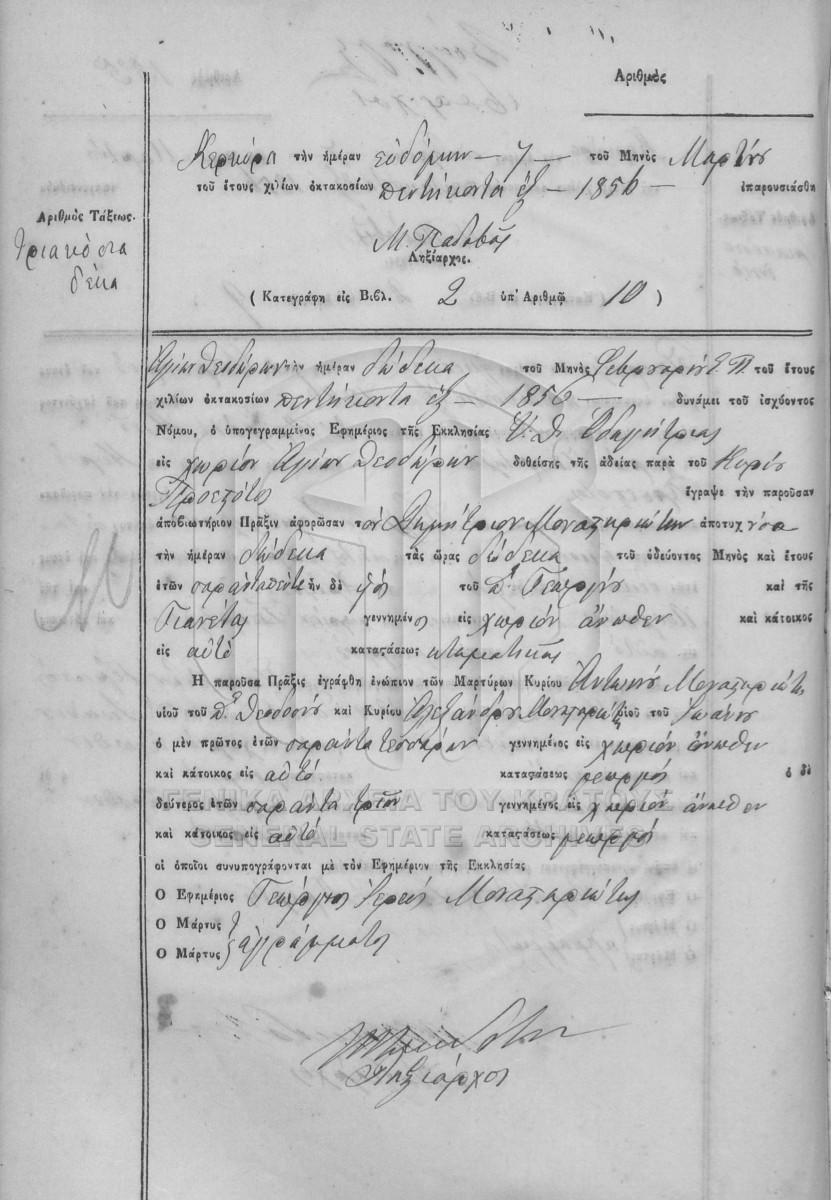 Αριθμὸς
Κερκύρα τὴν ἡμέραν εὐδόμην — 7 — τοῦ Μηνὸς Μαρτίου
τοῦ ἔτους χιλίων ὀκτακοσίων πεντήκοντα ἕξ — 1856 — ἐπαρουσιάσθη
Ἀριθμὸς Τάξεως.
τριακόσια
δέκα
Μ. Παδοβᾶς
Ληξίαρχος.
( Κατεγράφη εἰς Βιβλ. 2 ὑπ' Ἀριθμῷ 10 )
Ἁγίων Θεοδώρων τὴν ἡμέραν δώδεκα τοῦ Μηνὸς Φεβρουαρίου Ε. Π. τοῦ ἔτους
χιλίων ὀκτακοσίων πεντήκοντα ἕξ — 1856 — δυνάμει τοῦ ἰσχύοντος
Νόμου, ὁ ὑπογεγραμμένος Ἐφημέριος τῆς Ἐκκλησίας Ὑ. Θ. Ὁδηγήτριας
εἰς χωρίον Ἁγίων Θεοδώρων δοθείσης τῆς ἀδείας παρὰ τοῦ Κυρίου
Προεστότος ἔγραψε τὴν παροῦσαν
ἀποβιωτήριον Πρᾶξιν ἀφορῶσαν τὸν Δημήτριον Μοναστηριώτην ἀποτυχ
τὴν ἡμέραν δώδεκα τὰς ὥρας δώδεκα τοῦ ὁδεύοντος Μηνὸς καὶ ἔτους
ἐτῶν σαράντα πέντε ἦν δὲ υἱὸς τοῦ Γεωργίου καὶ τῆς
Γιανέτας γεννημένος εἰς χωρίον ἄνωθεν καὶ κάτοικος
εἰς αὐτὸ καταςάσεως κτηματικῆς
Ἡ παροῦσα Πρᾶξις ἐγράφθη ἐνώπιον τῶν Μαρτύρων Κυρίου Ἀντωνίου Μοναστηριώτη
υἱοῦ τοῦ Θεοδοσίου καὶ Κυρίου Ἀλεξάνδρου Μοναστηριώτη υἱοῦ τοῦ Ἰωάννου
ὁ μὲν πρῶτος ἐτῶν σαράντα τεσσάρων γεννημένος εἰς χωρίον ἄνωθεν
καὶ κάτοικος εἰς αὐτό καταςάσεως γεωργός ὁ δὲ
δεύτερος ἐτῶν σαράντα τριῶν γεννημένος εἰς χωρίον ἄνωθεν
καὶ κάτοικος εἰς αὐτό καταςάσεως γεωργός
οἱ ὁποῖοι συνυπογράφονται μὲ τὸν Ἐφημέριον τῆς Ἐκκλησίας
Ο Ἐφημέριος Γεώργιος Ἱερεύς Μοναστηριώτης
Ο Μάρτυς
Ο Μάρτυς } ἀγράμματοι
Ληξίαρχος
ΓΕΝΙΚΑ ΑΡΧΕΙΑ ΤΟΥ ΚΡΑΤΟΥΣ
GENERAL STATE ARCHIVES